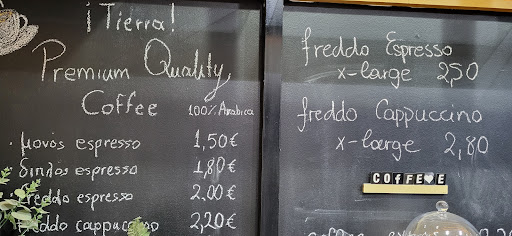 ¡Tierra!
Premium Quality
Coffee 100% Arabica
· μονός espresso 1,50€
· διπλός espresso 1,80€
· freddo espresso 2,00€
freddo cappuccino 2,20€
freddo Espresso
x-large 2,50
freddo Cappuccino
x-large 2,80
COFFE♥E
coffee